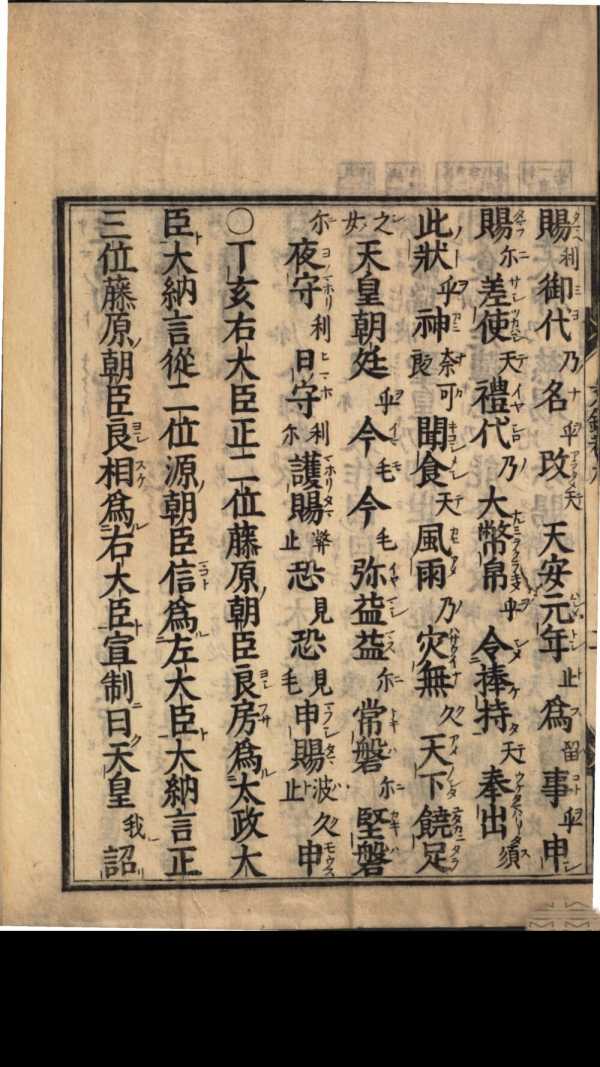 賜利御代乃名乎改天天安元年止為留事乎申
賜尓差使天禮代乃大幣帛乎令捧持天奉出須
此狀乎神奈可良聞食天風雨乃灾無久天下饒足
之女天皇朝廷乎今毛今毛弥益益尓常磐尓堅磐
尓夜守利日守利尓護賜幣止恐見恐見毛申賜波久止申
〇丁亥右大臣正二位藤原朝臣良房為太政大
臣大納言從二位源朝臣信為左大臣大納言正
三位藤原朝臣良相為右大臣宣制曰天皇我詔